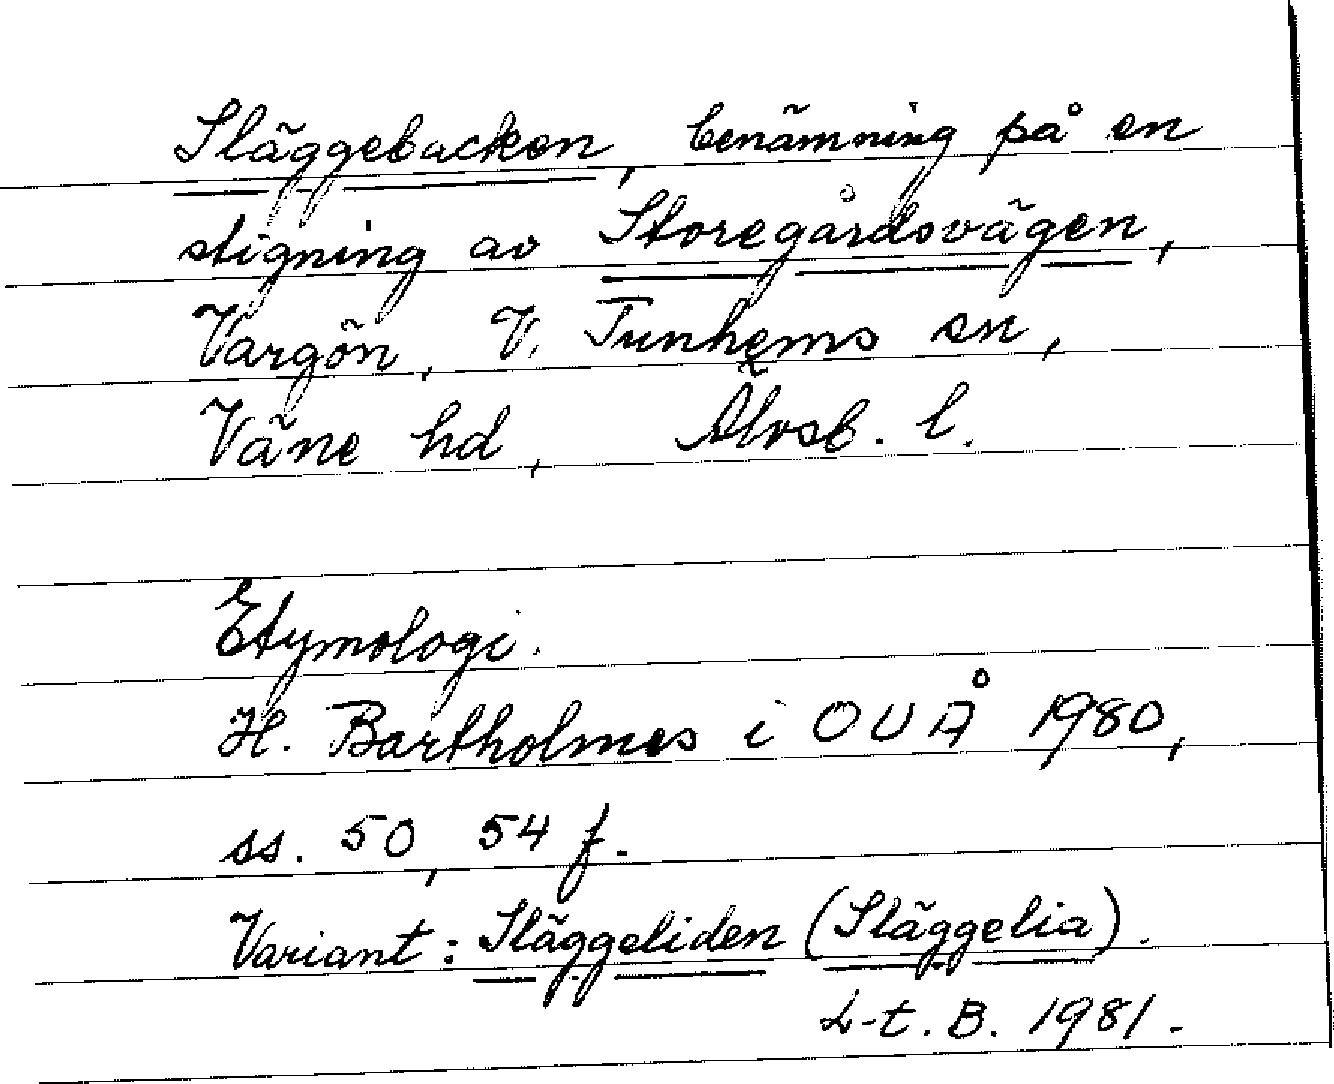 Släggebacken, benämning på en
stigning av Storegårdsvägen,
Vargön, V. Tunhems sn,
Väne hd, Älvsb. l.
Etymologi.
H. Bartholmes i OUÅ 1980,
ss. 50, 54 f.
Variant: Släggeliden (Släggelia).
L-t. B. 1981.